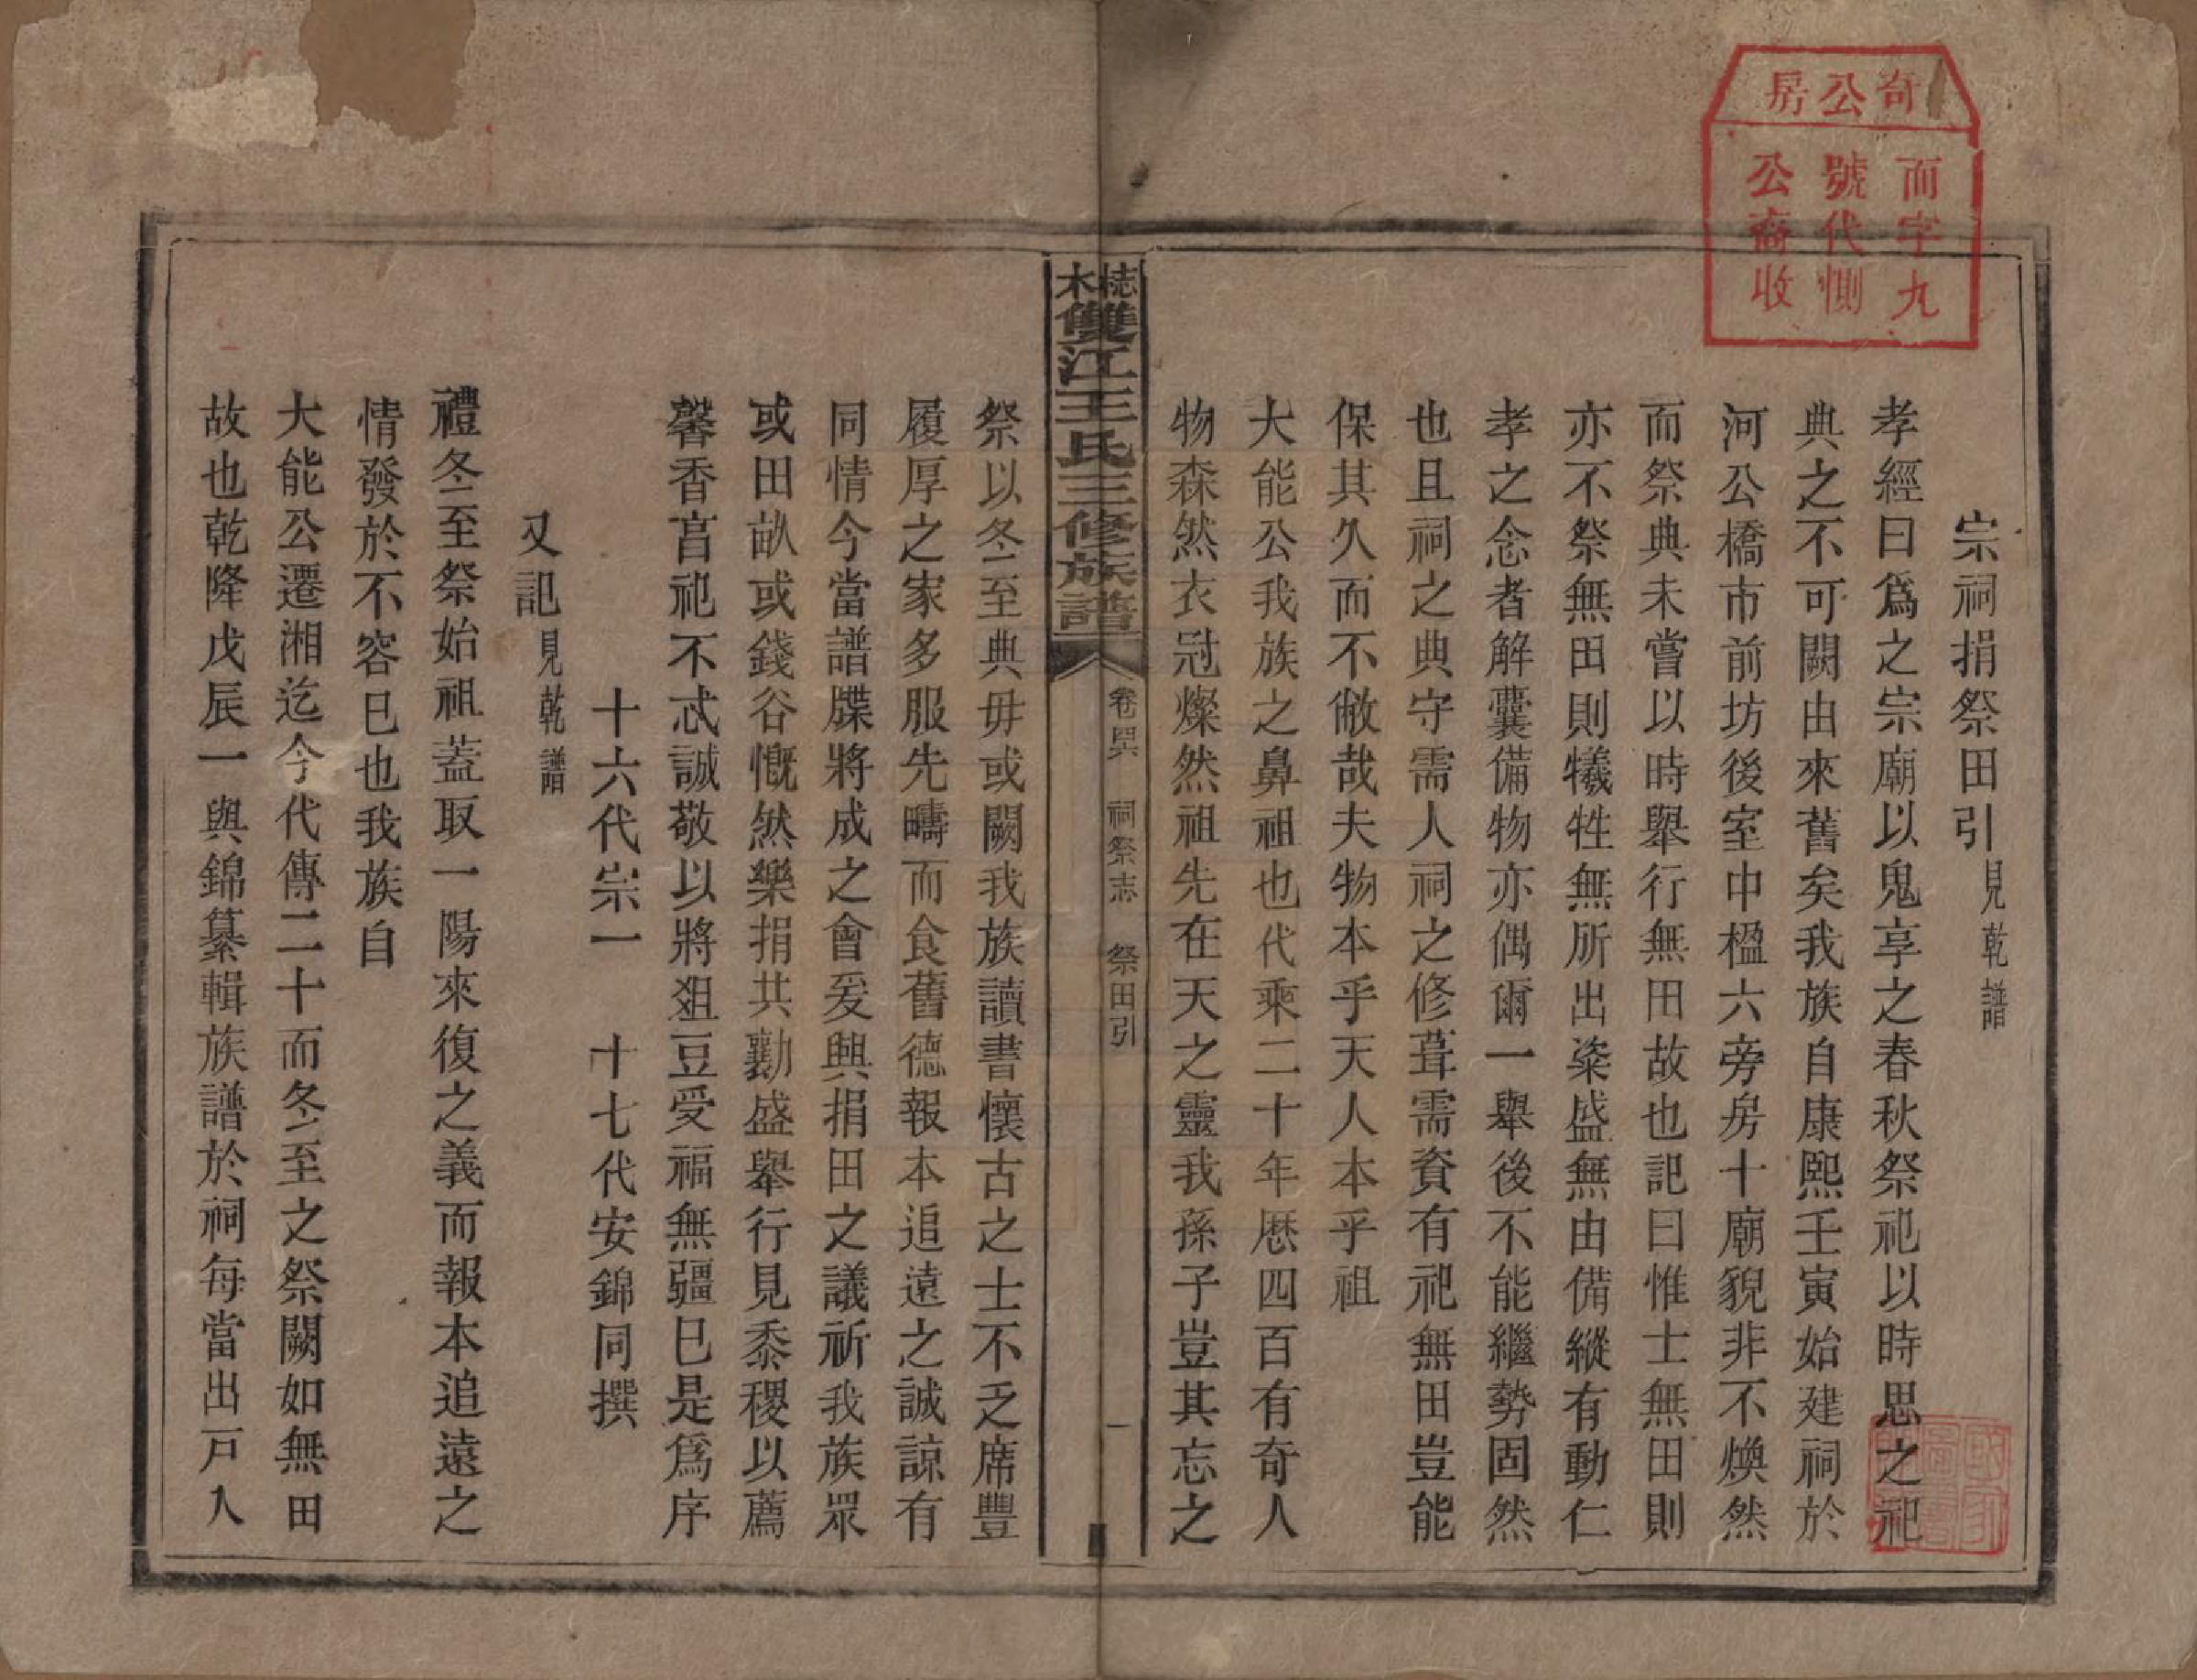 宗祠捐祭田引見乾譜
孝經曰爲之宗廟以鬼享之春秋祭祀以時思之祀
典之不可闕由來舊矣我族自康熙壬寅始建祠於
河公橋市前坊後室中楹六旁房十廟貌非不煥然
而祭典未嘗以時舉行無田故也記曰惟士無田則
亦不祭無田則犧牲無所出粢盛無由備縱有動仁
孝之念者解囊備物亦偶爾一舉後不能繼勢固然
也且祠之典守需人祠之修葺需資有祀無田豈能
保其久而不敝哉夫物本乎天人本乎祖
大能公我族之鼻祖也代乘二十年厯四百有奇人
物森然衣冠燦然祖先在天之靈我孫子豈其忘之
雙江王氏三修族譜
卷四六 祠祭志 祭田引 一
祭以冬至典毋或闕我族讀書懷古之士不乏席豐
履厚之家多服先疇而食舊德報本追遠之誠諒有
同情今當譜牒將成之會爰興捐田之議祈我族眾
或田畝或錢谷慨然樂捐共勷盛舉行見黍稷以薦
馨香亯祀不忒誠敬以將俎豆受福無疆已是爲序
十六代崇一 十七代安錦同撰
又記見乾譜
禮冬至祭始祖蓋取一陽來復之義而報本追遠之
情發於不容已也我族自
大能公遷湘迄今代傳二十而冬至之祭闕如無田
故也乾隆戊辰一與錦纂輯族譜於祠每當出戸入
奇公房
而字九
號代惻
公裔收